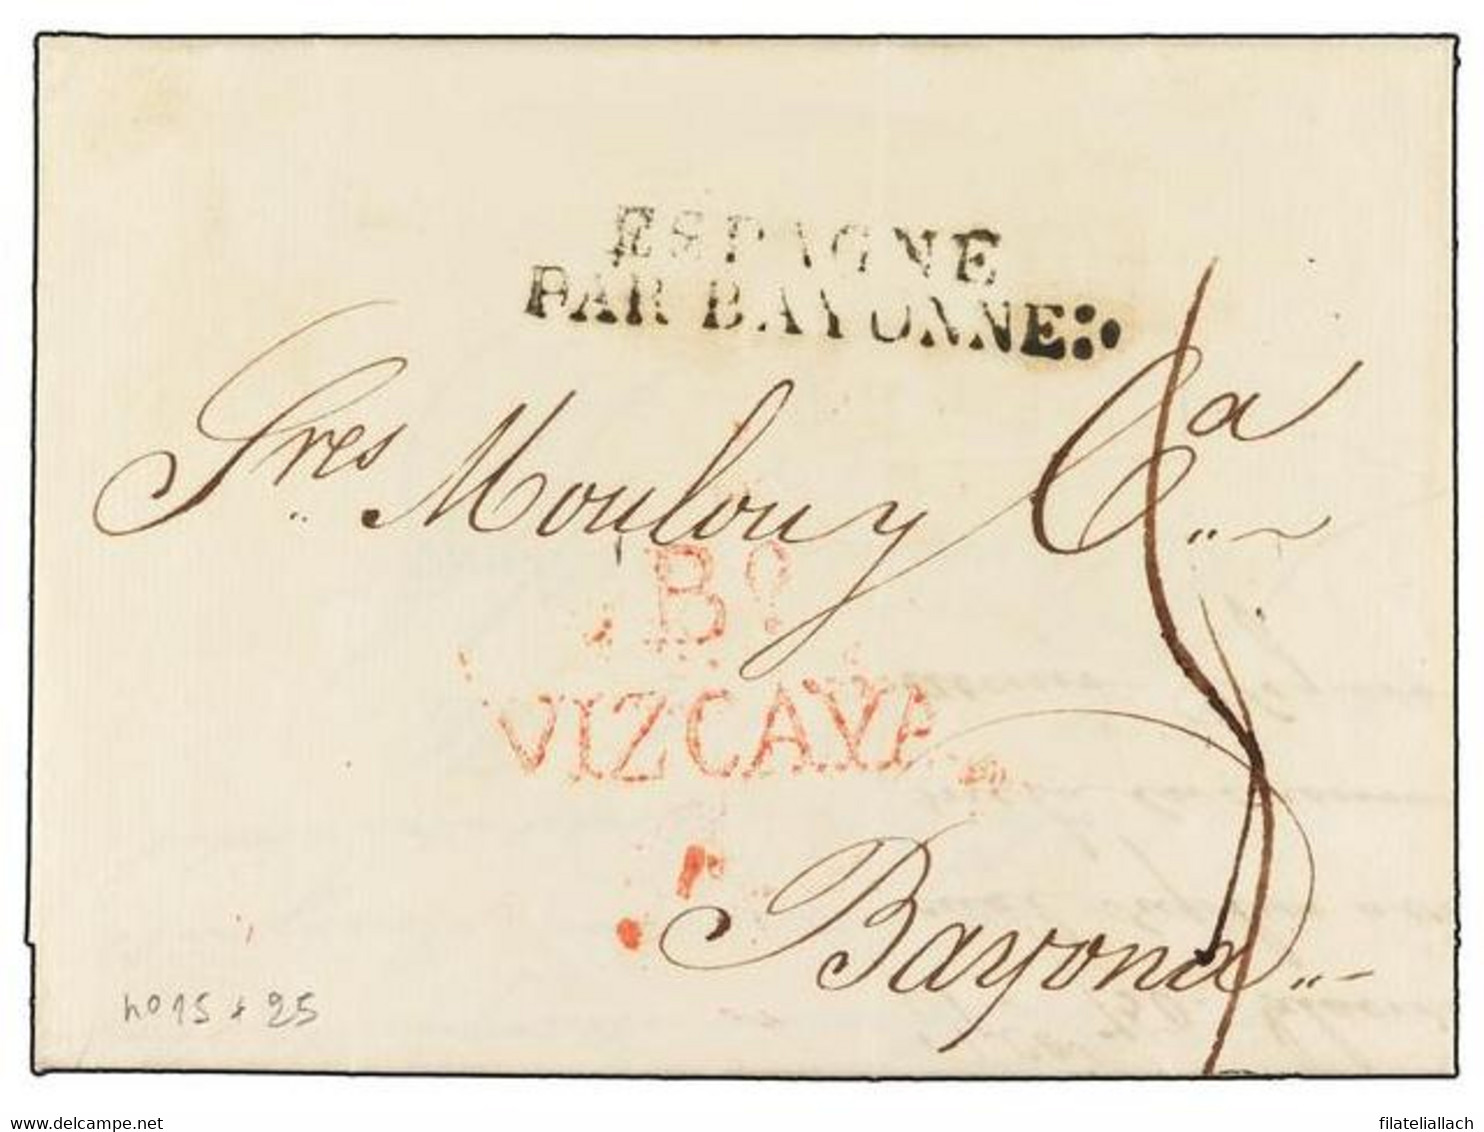 ESPAGNE
PAR BAYONNE
Sres Moulou y Ca
Bo
VIZCAYA
Bayona
no 15 + 25
www.delcampe.net
filateliallach